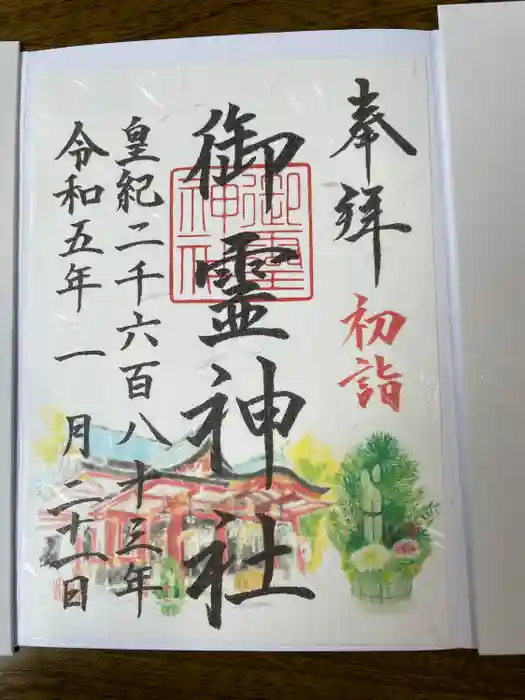 奉拝
初詣
御霊神社
御霊神社
皇紀二千六百八十三年
令和五年一月二十一日